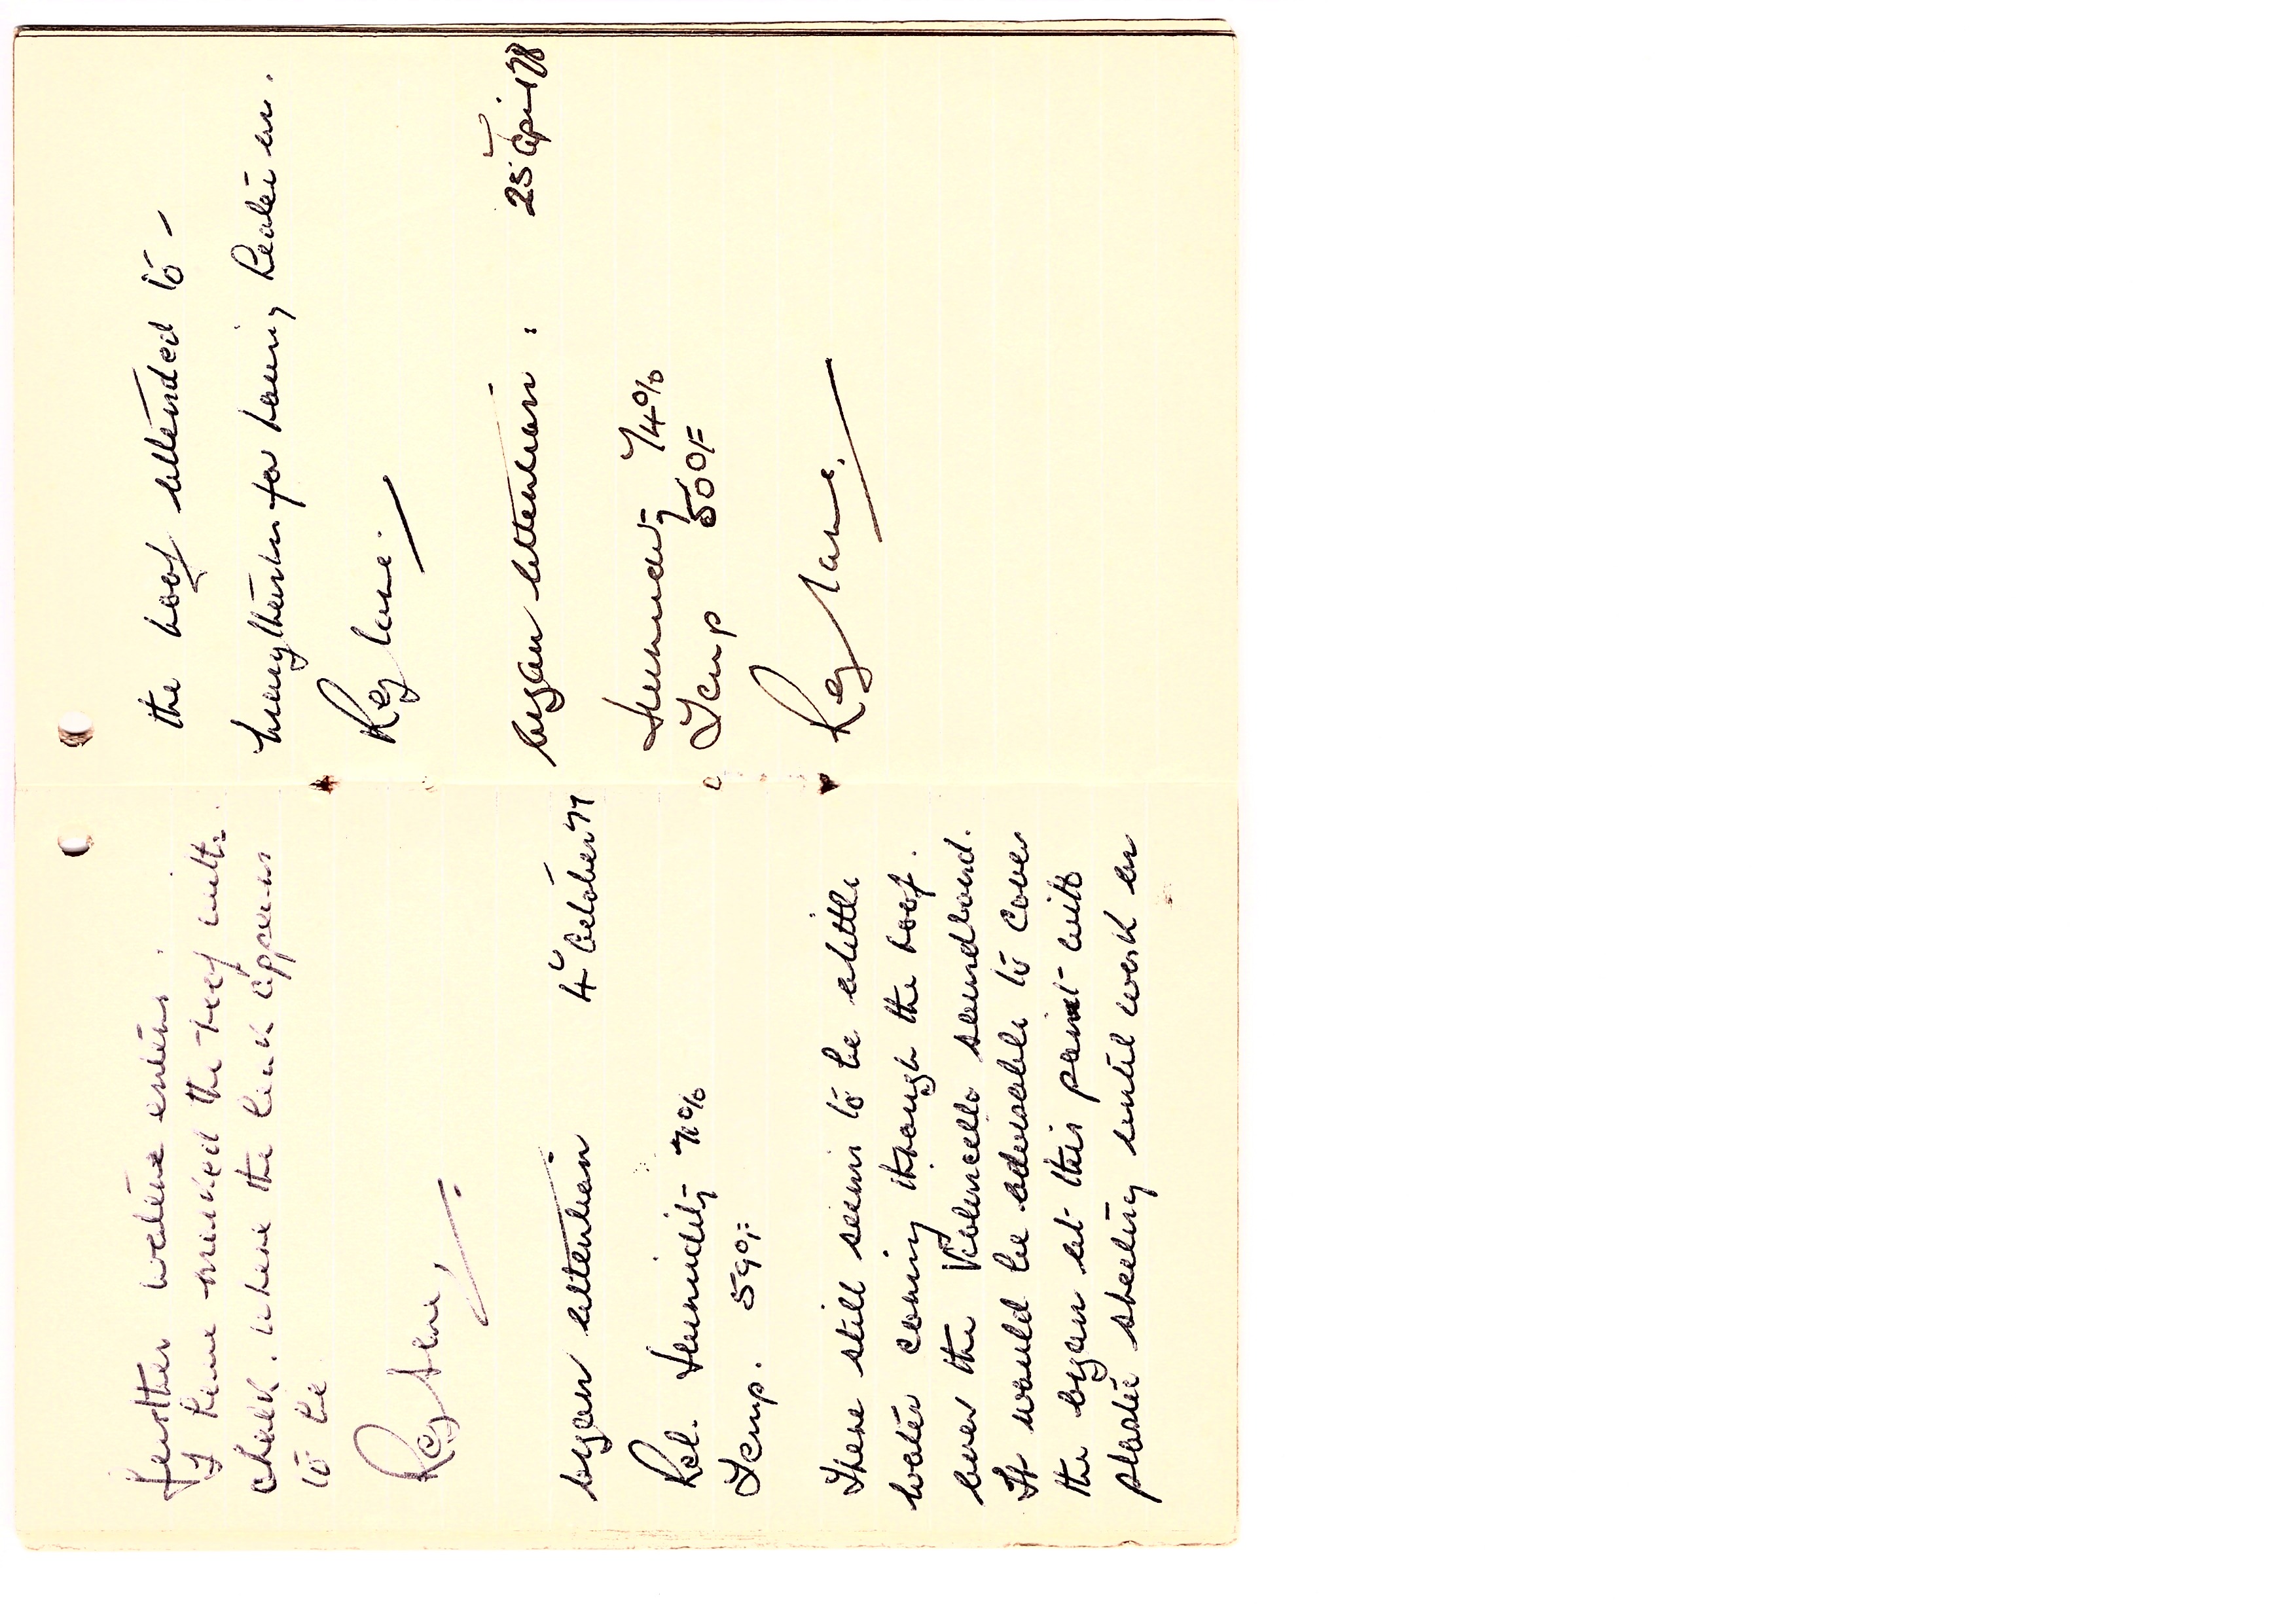 further water enters.
I have marked the roof with
chalk, where the leak appears
to be
Reg Lane,
Organ attention 4th October 77
Rel. Humidity 71%
Temp. 59°F
There still seems to be a little
water coming through the roof.
over the Violoncello soundboard.
It would be advisable to cover
the organ at this point with
plastic sheeting until work on
the roof attended to -
for having heater on.
Reg Lane.
Organ attention: 25th April 78
Humidity 74%
Temp 50°F
Reg Lane.